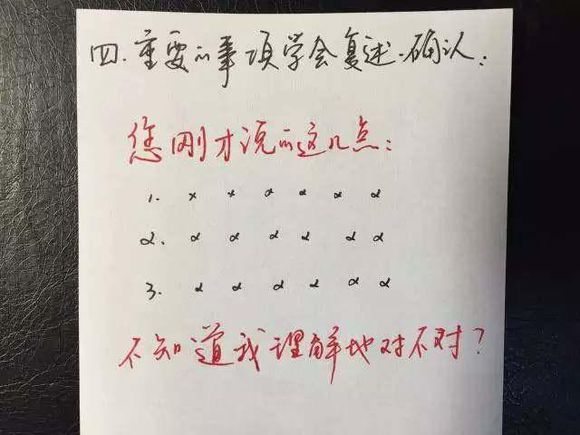 四.重要的事项学会复述.确认:
您刚才说的这几点:
1. x x x x x x
2. x x x x x x
3. x x x x x x
不知道我理解地对不对?